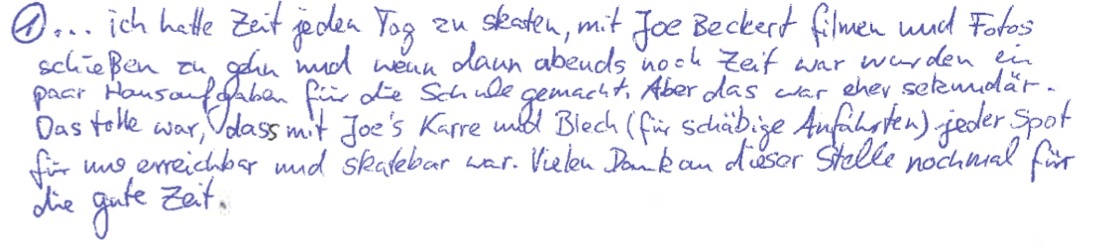 ① ... ich hatte Zeit jeden Tag zu skaten, mit Joe Beckert filmen und Fotos
schießen zu gehn und wenn dann abends noch Zeit war wurden ein
paar Hausaufgaben für die Schule gemacht. Aber das war eher sekundär.
Das tolle war, dass mit Joe's Karre und Blech (für schäbige Anfahrten) jeder Spot
für uns erreichbar und skatebar war. Vielen Dank an dieser Stelle nochmal für
die gute Zeit.